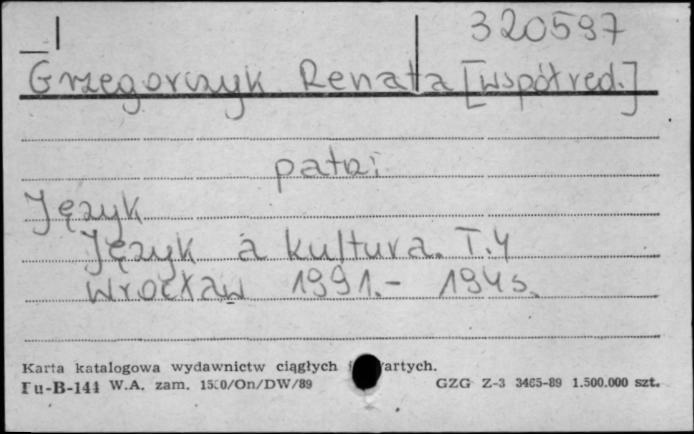 320597
Grzegorczyk Renata [współred.]
patrz:
Język
Język a kultura. T.4
Wrocław 1991.- 194 s.
Karta katalogowa wydawnictw ciągłych i zwartych.
Pu-B-144 W.A. zam. 1500/On/DW/89 GZG Z-3 3465-89 1.500.000 szt.